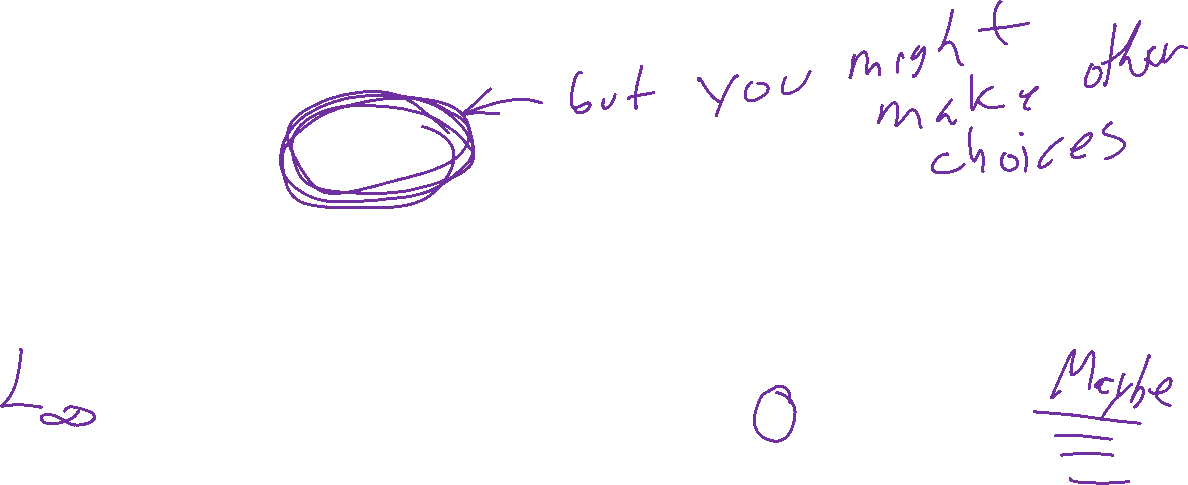 but you might
make other
choices
L∞
0
Maybe